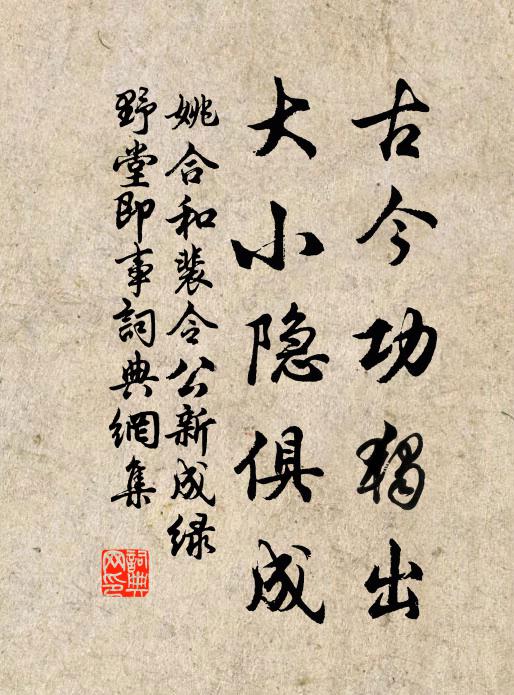 古今功独出
大小隐俱成
姚合和裴令公新成绿
野堂即事詞典網集
詞典
网印